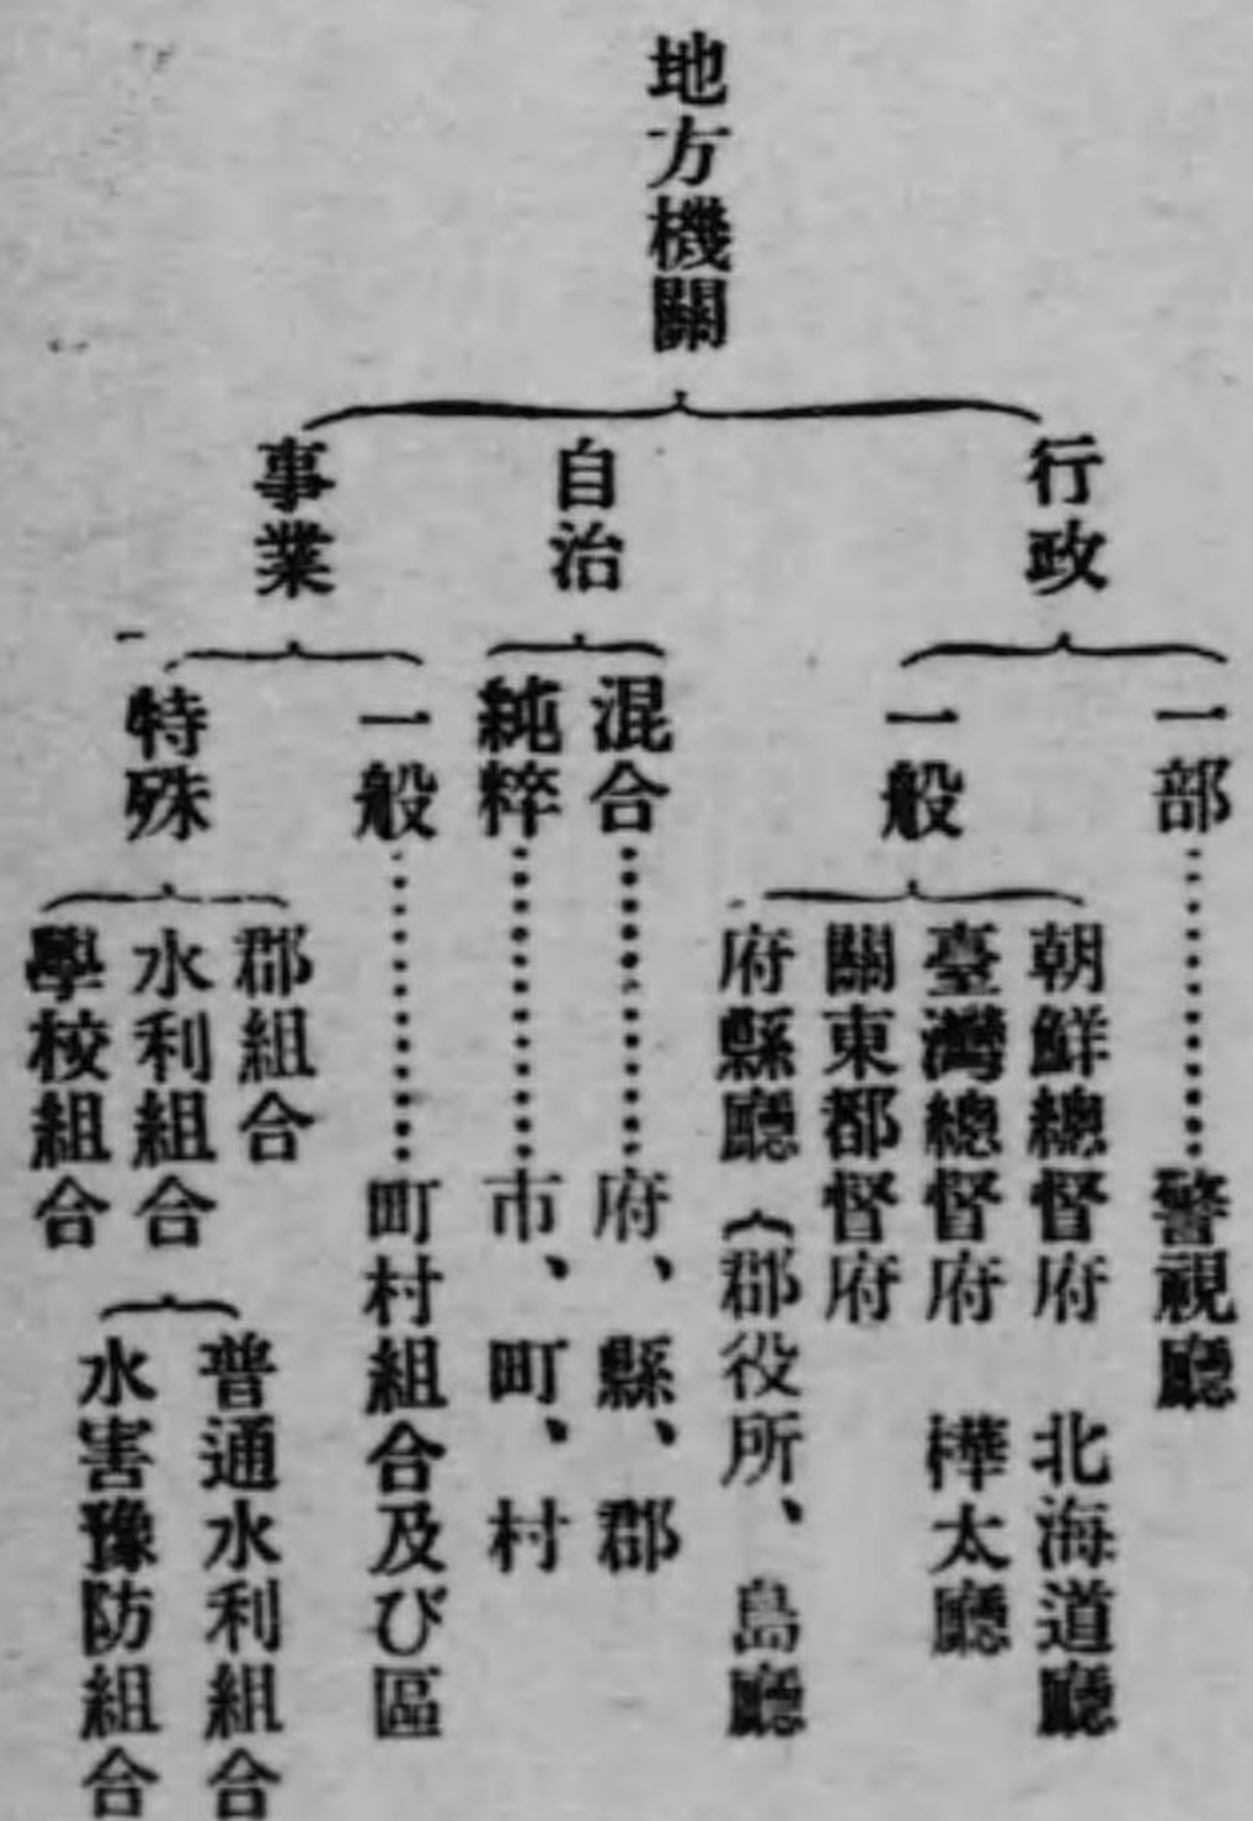 地方機關
行政
一部……警視廳
一般
朝鮮總督府 北海道廳
臺灣總督府 樺太廳
關東都督府
府縣廳(郡役所、島廳
自治
混合……府、縣、郡
純粹……市、町、村
事業
一般……町村組合及び區
特殊
郡組合
水利組合
普通水利組合
水害豫防組合
學校組合